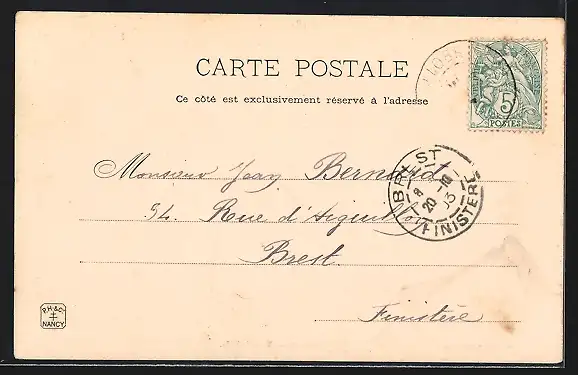 CARTE POSTALE
Ce côté est exclusivement réservé à l'adresse
5
POSTES
BREST
8
20
13
FINISTERE
Monsieur Jean Bernard
54. Rue d'Aiguillon
Brest.
Finistère
P.H. & Cie
NANCY